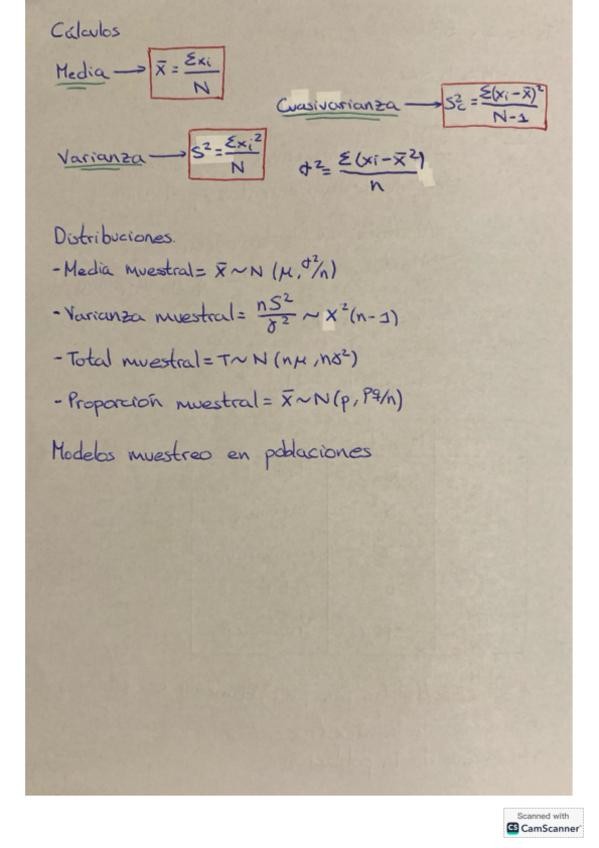 Cálculos
Media → x̄ = Σxi / N
Cuasivarianza → Sc² = Σ(xi - x̄)² / N-1
Varianza → S² = Σxi² / N
σ² = Σ(xi - x̄²) / n
Distribuciones.
- Media muestral = x̄ ~ N (μ, σ²/n)
- Varianza muestral = nS² / σ² ~ X²(n-1)
- Total muestral = T ~ N (nμ, nσ²)
- Proporción muestral = x̄ ~ N(p, pq/n)
Modelos muestreo en poblaciones
Scanned with
CS CamScanner